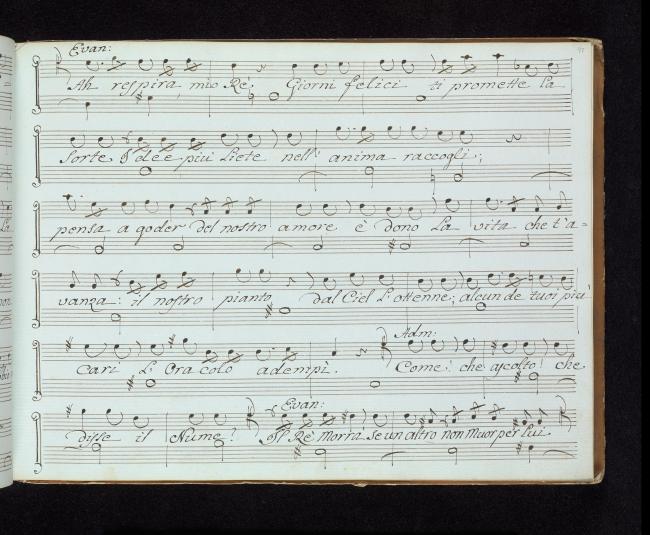 Evan:
Ah respira, mio Rè: Giorni felici ti promette la
sorte. I dee più liete nell' anima raccogli;
pensa a goder del nostro amore è dono la vita che t'a=
vanza: il nostro pianto dal Ciel l'ottenne; alcun de tuoi più
Adm:
cari l'Oracolo adempì. Come! che ascolto! che
Evan:
disse il Nume? Il Rè Morrà se un altro non Muor per lui